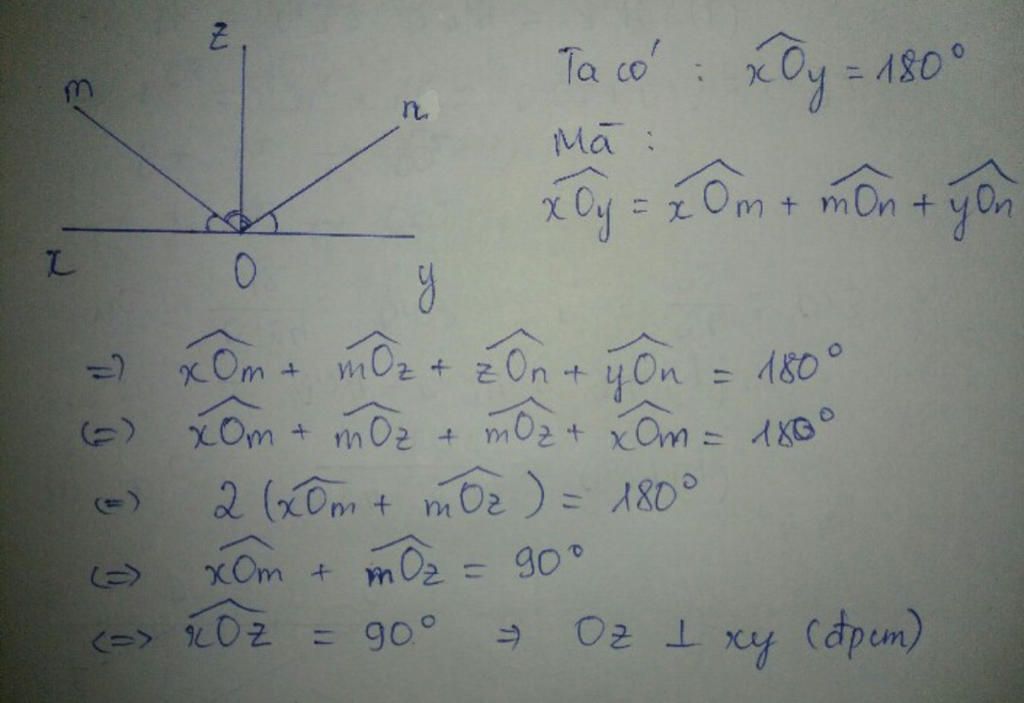 z
m
n
x O y
Ta có : $\widehat{xOy} = 180^\circ$
Mà :
$\widehat{xOy} = \widehat{xOm} + \widehat{mOn} + \widehat{yOn}$
=> $\widehat{xOm} + \widehat{mOz} + \widehat{zOn} + \widehat{yOn} = 180^\circ$
(=) $\widehat{xOm} + \widehat{mOz} + \widehat{mOz} + \widehat{xOm} = 180^\circ$
(=) $2 (\widehat{xOm} + \widehat{mOz}) = 180^\circ$
<=> $\widehat{xOm} + \widehat{mOz} = 90^\circ$
<=> $\widehat{xOz} = 90^\circ$ => Oz ⊥ xy (đpcm)